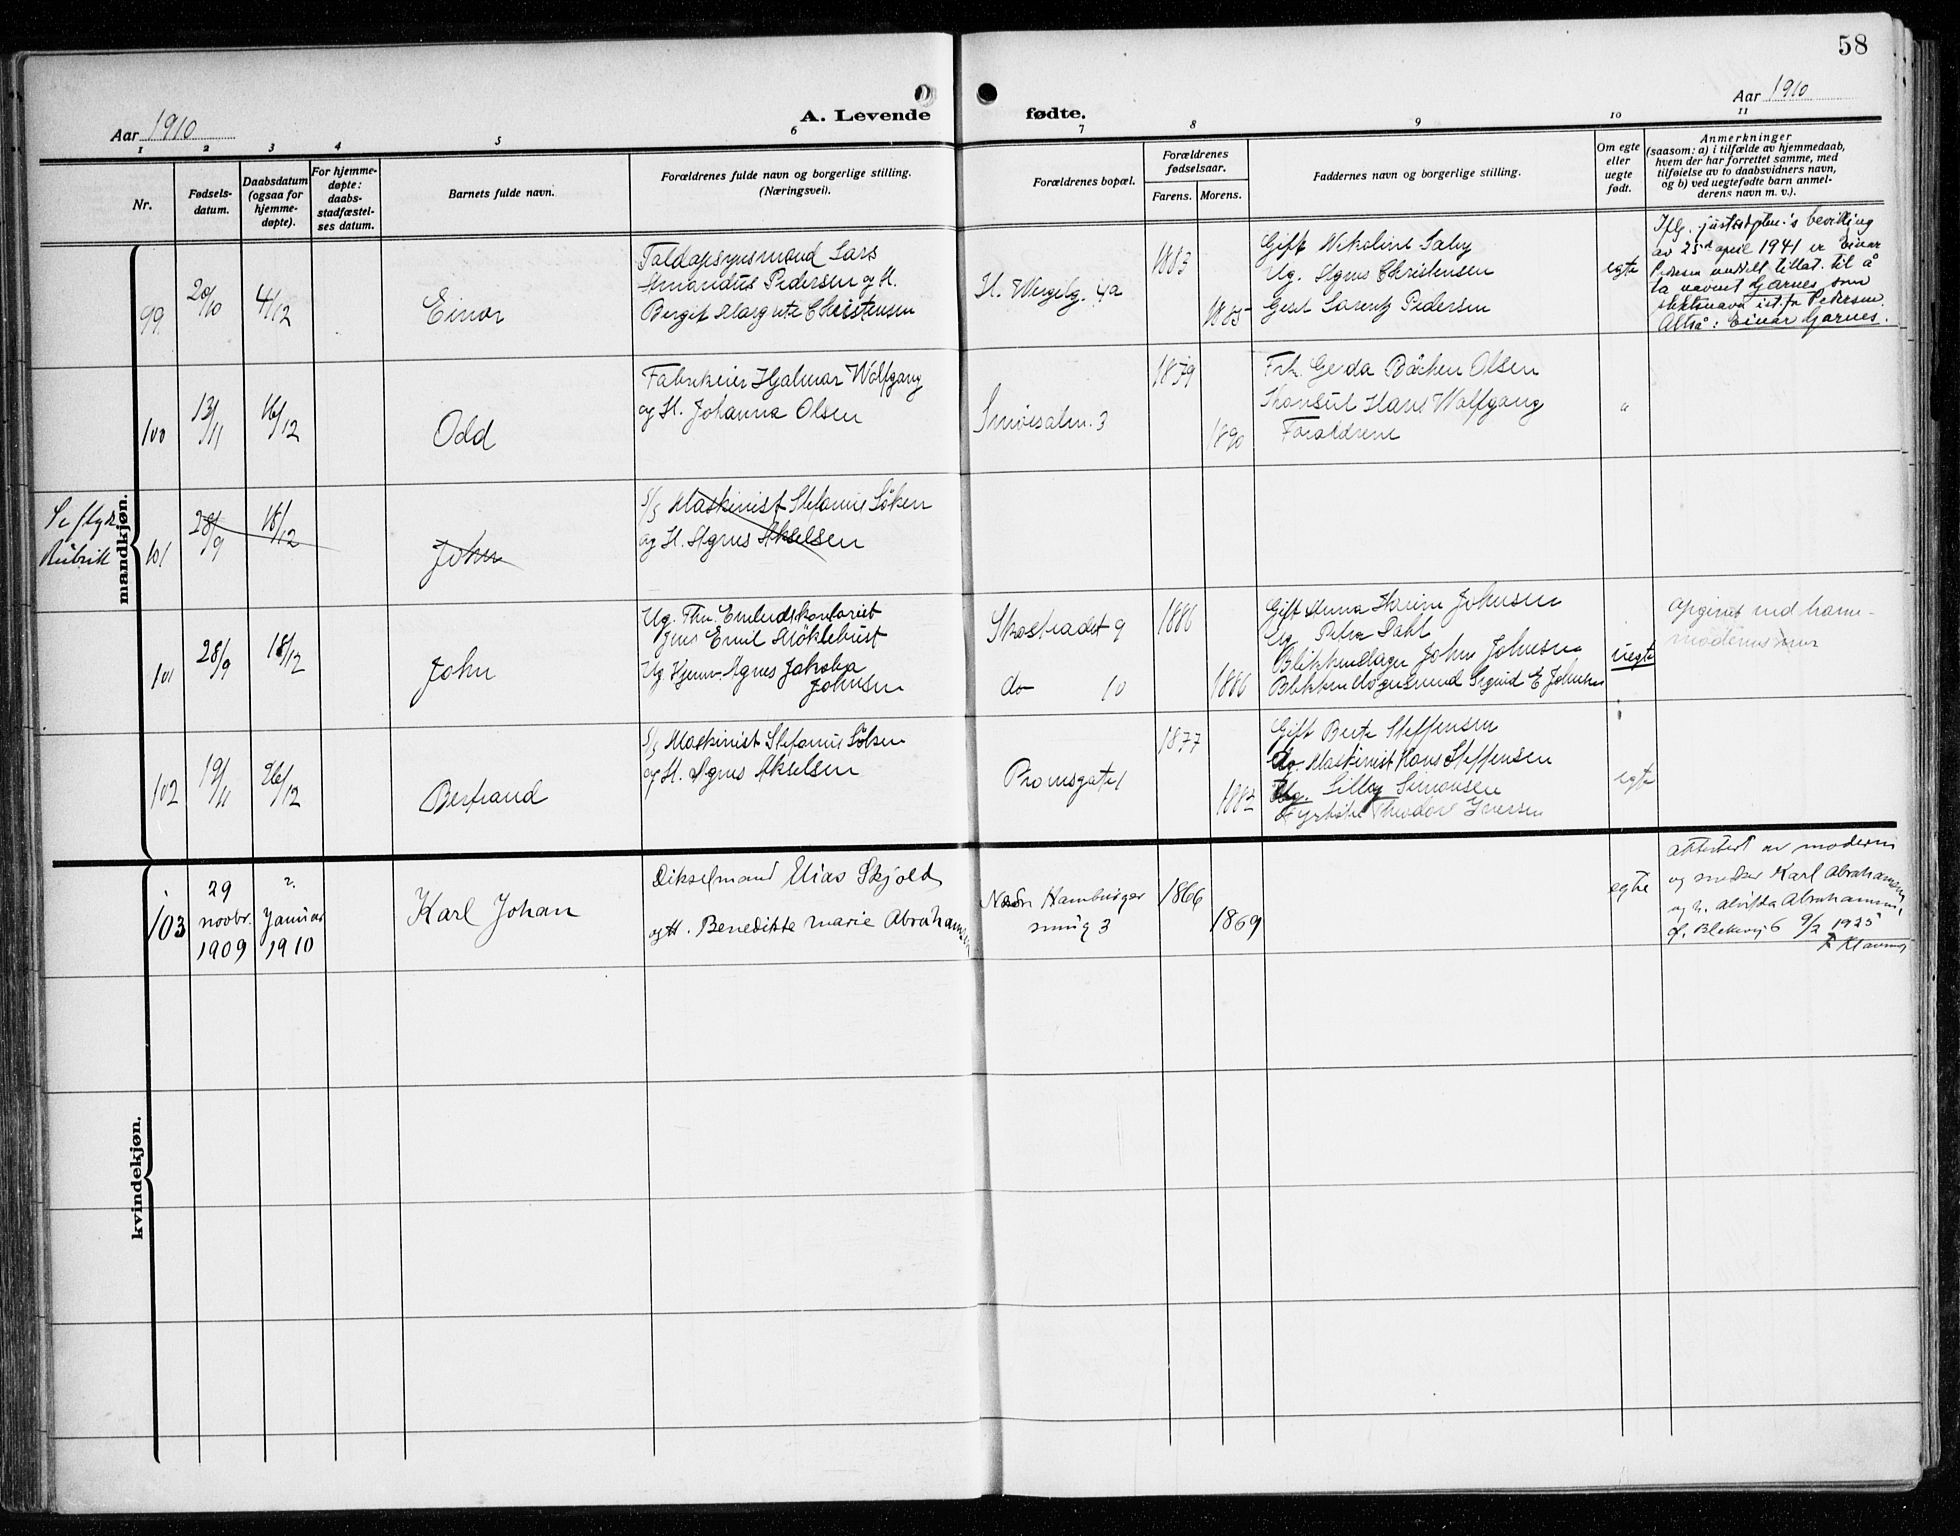 58
Aar 1910
A. Levende
fødte.
Aar 1910
1 2 3 4 5 6 7 8 9 10 11
Nr.
Fødsels-
datum.
Daabsdatum
(ogsaa for
hjemme-
døpte).
For hjemme-
døpte:
daabs-
stadfæstel-
ses datum.
Barnets fulde navn.
Forældrenes fulde navn og borgerlige stilling.
(Næringsvei).
Forældrenes bopæl.
Forældrenes
fødselsaar.
Farens. Morens.
Faddernes navn og borgerlige stilling.
Om egte
eller
uegte
født.
Anmerkninger
(saasom: a) i tilfælde av hjemmedaab,
hvem der har forrettet samme, med
tilføielse av to daabsvidners navn,
og b) ved uegtefødte barn anmel-
derens navn m. v.).
mandkjøn.
99
20/10
4/12
Einar
Toldopsynsmand Lars
Amandus Pedersen og H.
Bergit Margrete Christensen
H. Wergelg. 4a
1883
1885
Gift Nikoline Saby
Ug. Agnes Christensen
Gesel Lorentz Pedersen
egte
Iflg. justisdptm.'s bevilling
av 25d april 1941 er Einar
Pedersen meddelt tillat. til å
ta navnet Gjarnes som
slektsnavn ist. for Pedersen.
Altså: Einar Gjarnes.
100
13/11
16/12
Odd
Fabrikeier Hjalmar Wolfgang
og H. Johanna Olsen
Smørsalm. 3
1879
1890
Frk. Gerda Olsen
Konsul Hans Wolfgang
Forældrene
"
Se flyk
Rubrik
101
28/9
18/12
John
S/S Maskinist Stefanus Søken
og H. Agnes Akselsen
101
28/9
18/12
John
Ug.
Jens Emil Møklebust
Ug Agnes Jakoba
Johnsen
9
do 10
1886
1886
Gift Anna Johnsen
Ug Petra Dahl
John Johnsen
Sigrid E Johnsen
uegte
opgivet ved
moderens
102
19/11
26/12
Bertrand
S/S Maskinist Stefanus Søken
og H. Agnes Akselsen
Promsgatel
1877
1882
Gift Berte Steffensen
do. Maskinist Hans Steffensen
Ug. Lilly Simonsen
Fyrbøter Theodor Iversen
egte
kvindekjøn.
103
29
novbr.
1909
2.
Januar
1910
Karl Johan
Dikselmand Elias Skjold
og H. Benedikte Marie Abrahamsen
Nedre Hamburger
smug 3
1866
1869
egte
attestert av moderen
og Karl Abrahamsen
og h. Alvilda Abrahamsen,
9/2 1925